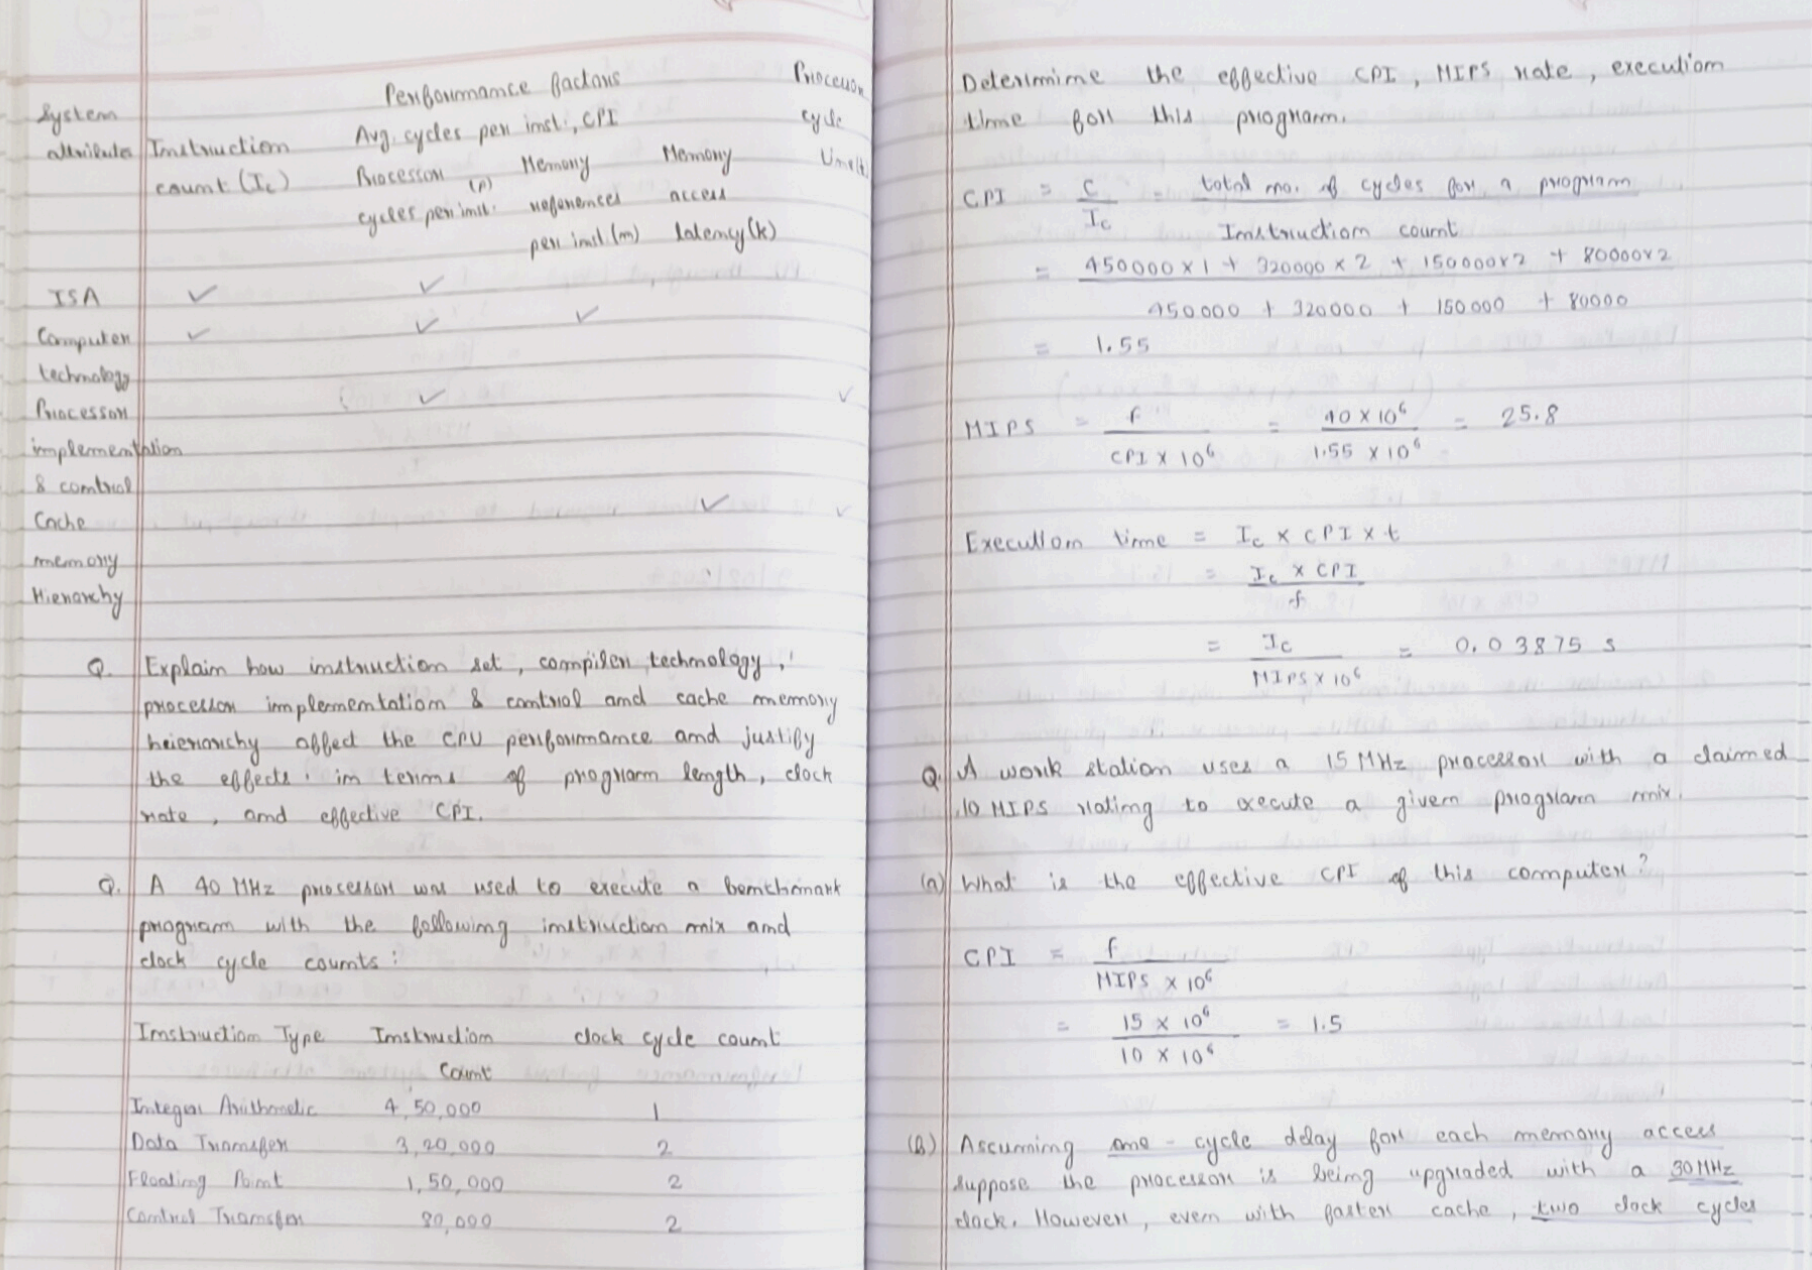 Performance factors
Processor
System
attributes
Instruction
count (Ic)
Avg. cycles per inst., CPI
cycle
time(t)
Processor
cycles per inst. (p)
Memory
references
per inst (m)
Memory
access
latency (k)
ISA ✓ ✓
Computer ✓ ✓ ✓
technology
Processor ✓ ✓
implementation
& control
Cache ✓ ✓
memory
Hierarchy
Q. Explain how instruction set, compiler technology,
processor implementation & control and cache memory
heierarchy affect the CPU performance and justify
the effects in terms of program length, clock
rate, and effective CPI.
Q. A 40 MHz processor was used to execute a benchmark
program with the following instruction mix and
clock cycle counts:
Instruction Type Instruction clock cycle count
Count
Integer Arithmetic 4,50,000 1
Data Transfer 3,20,000 2
Floating Point 1,50,000 2
Control Transfer 80,000 2
Determine the effective CPI, MIPS rate, execution
time for this program.
CPI = C / Ic = total no. of cycles for a program / Instruction count
= 450000 x 1 + 320000 x 2 + 150000x2 + 80000x2
450000 + 320000 + 150000 + 80000
= 1.55
MIPS = f / CPI x 10⁶ = 40 x 10⁶ / 1.55 x 10⁶ = 25.8
Execution time = Ic x CPI x t
= Ic x CPI / f
= Ic / MIPS x 10⁶ = 0.03875 s
Q. A work station uses a 15 MHz processor with a claimed
10 MIPS rating to execute a given program mix.
(a) What is the effective CPI of this computer?
CPI = f / MIPS x 10⁶
= 15 x 10⁶ / 10 x 10⁶ = 1.5
(b) Assuming one-cycle delay for each memory access
suppose the processor is being upgraded with a 30 MHz
clock. However, even with faster cache, two clock cycles